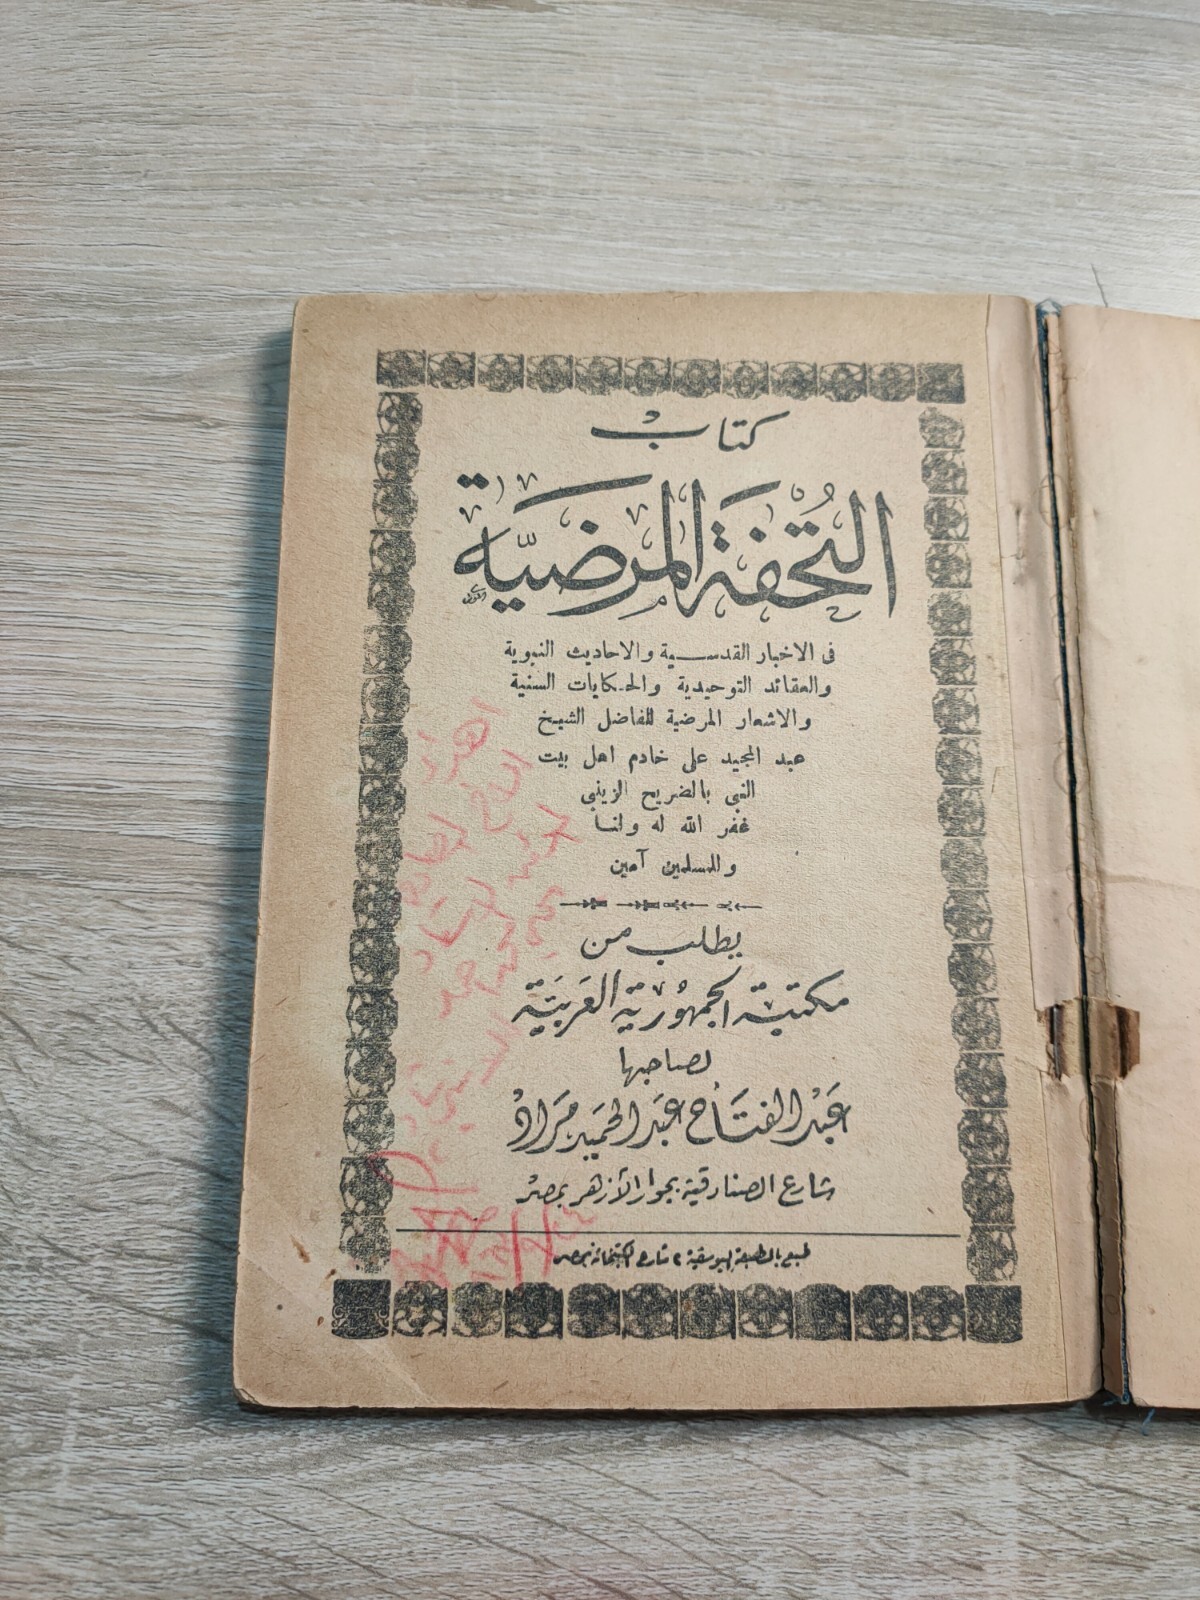 كتاب
التُحفة المرضيّة
فى الاخبار القدسية والاحاديث النبوية
والعقائد التوحيدية والحكايات السنية
والاشعار المرضية للفاضل الشيخ
عبد المجيد على خادم اهل بيت
النبى بالضريح الزينبى
غفر الله له ولنا
وللمسلمين آمين
يطلب من
مكتبة الجمهورية العربية
لصاحبها
عبد الفتاح عبد الحميد مراد
شارع الصنادقية بجوار الأزهر بمصر
طبع بالمطبعة اليوسفية ٢ شارع الكتبخانة بمصر